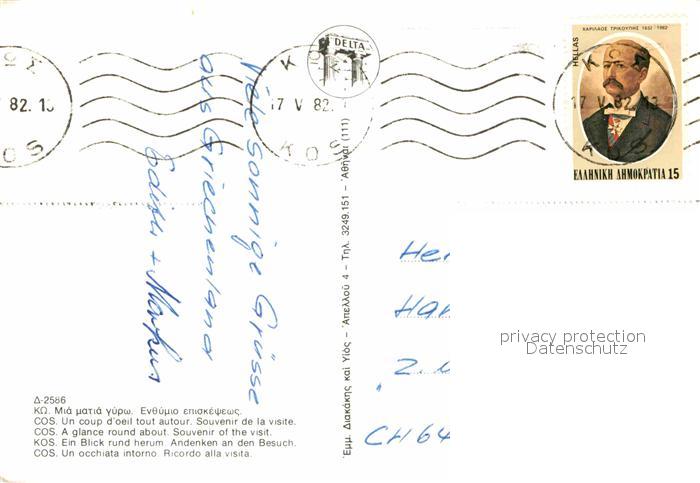 ΚΩΣ
17 V 82.13
KOS
DELTA
ΚΩΣ
17 V 82
KOS
ΧΑΡΙΛΑΟΣ ΤΡΙΚΟΥΠΗΣ 1832 - 1982
HELLAS
ΚΩΣ
17 V 82.13
KOS
ΕΛΛΗΝΙΚΗ ΔΗΜΟΚΡΑΤΙΑ 15
Viele sonnige Grüsse
aus Griechenland
Edith + Markus
Ἐμμ. Διακάκης καί Υἱός – Ἀπελλοῦ 4 – Τηλ. 3249.151 – Ἀθῆναι (111)
He
Han
CH 64
privacy protection
Datenschutz
Δ-2586
ΚΩ. Μιά ματιά γύρω. Ενθύμιο επισκέψεως.
COS. Un coup d'oeil tout autour. Souvenir de la visite.
COS. A glance round about. Souvenir of the visit.
KOS. Ein Blick rund herum. Andenken an den Besuch.
COS. Un occhiata intorno. Ricordo alla visita.